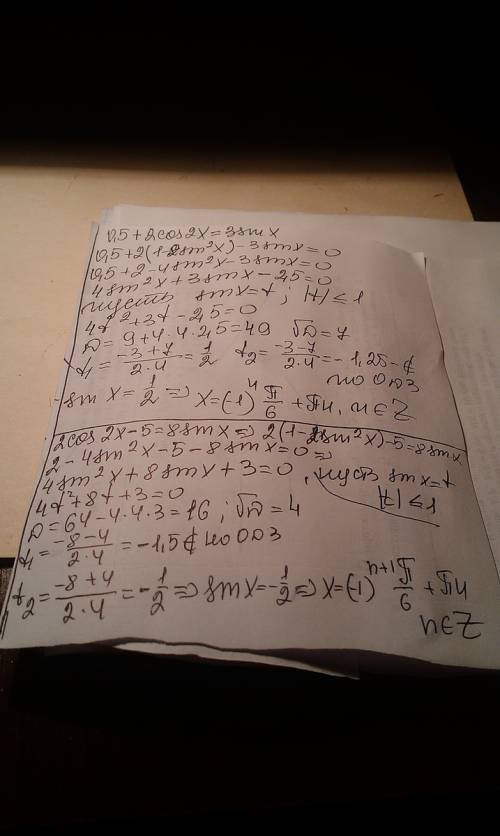 0,5+2cos2x=3sinx
0,5+2(1-2sin²x)-3sinx=0
0,5+2-4sin²x-3sinx=0
4sin²x+3sinx-2,5=0
пусть sinx=t; |t|≤1
4t²+3t-2,5=0
D=9+4·4·2,5=49 √D=7
t₁=(-3+7)/(2·4)=1/2 t₂=(-3-7)/(2·4)=-1,25-∉
по ОДЗ
sin x=1/2⇒ x=(-1)ⁿ π/6+πn, n∈Z
2cos2x-5=8sinx⇒2(1-2sin²x)-5=8sinx
2-4sin²x-5-8sinx=0⇒
4sin²x+8sinx+3=0, пусть sinx=t
4t²+8t+3=0 |t|≤1
D=64-4·4·3=16; √D=4
t₁=(-8-4)/(2·4)=-1,5∉ по ОДЗ
t₂=(-8+4)/(2·4)=-1/2⇒sinx=-1/2⇒x=(-1)ⁿ⁺¹ π/6+πn
n∈Z